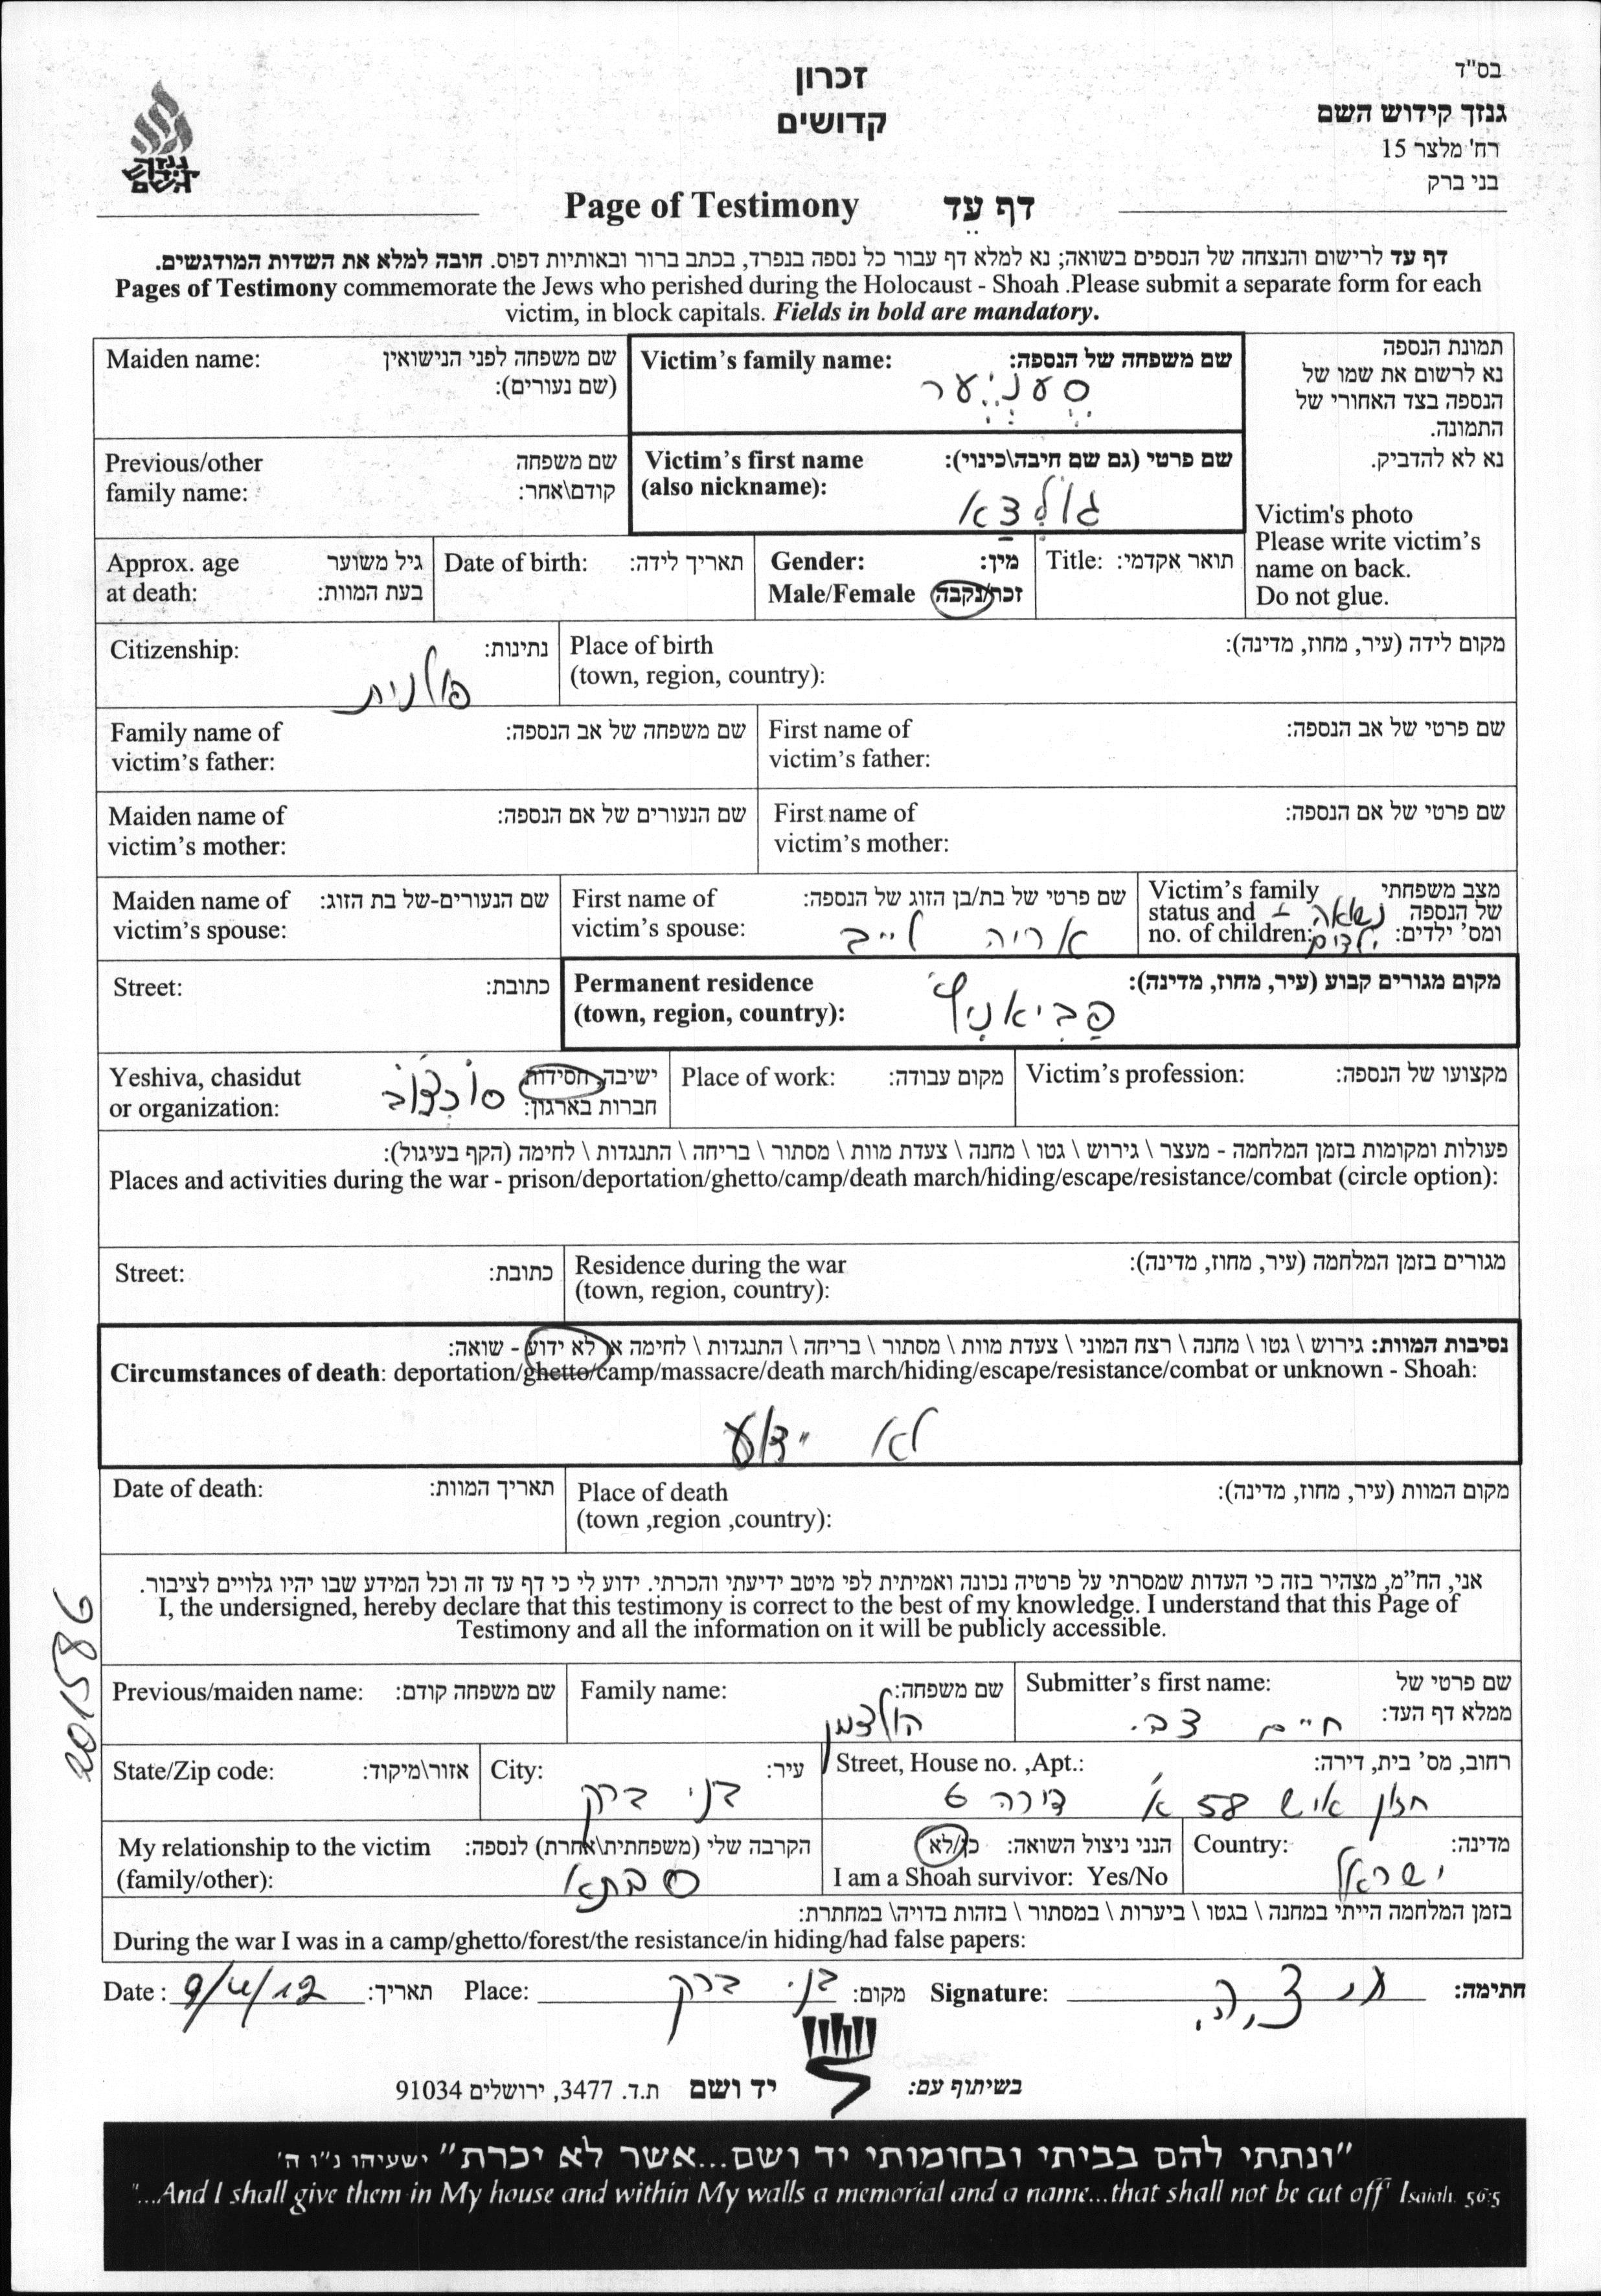 בס"ד
גנזך קידוש השם
רח' מלצר 15
בני ברק
זכרון
קדושים
גנזך
קידוש
השם
Page of Testimony דף עֵד
דף עד לרישום והנצחה של הנספים בשואה; נא למלא דף עבור כל נספה בנפרד, בכתב ברור ובאותיות דפוס. חובה למלא את השדות המודגשים.
Pages of Testimony commemorate the Jews who perished during the Holocaust - Shoah .Please submit a separate form for each
victim, in block capitals. Fields in bold are mandatory.
תמונת הנספה
נא לרשום את שמו של
הנספה בצד האחורי של
התמונה.
נא לא להדביק.
Victim's photo
Please write victim's
name on back.
Do not glue.
Victim's family name: שם משפחה של הנספה:
Maiden name: שם משפחה לפני הנישואין
(שם נעורים):
Victim's first name שם פרטי (גם שם חיבה\כינוי):
(also nickname):
גולדצא
Previous/other שם משפחה
family name: קודם\אחר:
Title: תואר אקדמי:
Gender: מין:
Male/Female זכר/נקבה
Date of birth: תאריך לידה:
Approx. age גיל משוער
at death: בעת המוות:
Place of birth מקום לידה (עיר, מחוז, מדינה):
(town, region, country):
Citizenship: נתינות:
פולנית
First name of שם פרטי של אב הנספה:
victim's father:
Family name of שם משפחה של אב הנספה:
victim's father:
First name of שם פרטי של אם הנספה:
victim's mother:
Maiden name of שם הנעורים של אם הנספה:
victim's mother:
Victim's family מצב משפחתי
status and של הנספה
no. of children: ומס' ילדים:
נשואה +
ילדים
First name of שם פרטי של בת/בן הזוג של הנספה:
victim's spouse:
אריה לייב
Maiden name of שם הנעורים-של בת הזוג:
victim's spouse:
Permanent residence מקום מגורים קבוע (עיר, מחוז, מדינה):
(town, region, country):
פביאניץ'
Street: כתובת:
Victim's profession: מקצועו של הנספה:
Place of work: מקום עבודה:
Yeshiva, chasidut ישיבה, חסידות
or organization: חברות בארגון:
סוכצוב
פעולות ומקומות בזמן המלחמה - מעצר \ גירוש \ גטו \ מחנה \ צעדת מוות \ מסתור \ בריחה \ התנגדות \ לחימה (הקף בעיגול):
Places and activities during the war - prison/deportation/ghetto/camp/death march/hiding/escape/resistance/combat (circle option):
Residence during the war מגורים בזמן המלחמה (עיר, מחוז, מדינה):
(town, region, country):
Street: כתובת:
נסיבות המוות: גירוש \ גטו \ מחנה \ רצח המוני \ צעדת מוות \ מסתור \ בריחה \ התנגדות \ לחימה או לא ידוע - שואה:
Circumstances of death: deportation/ghetto/camp/massacre/death march/hiding/escape/resistance/combat or unknown - Shoah:
לא ידוע
Place of death מקום המוות (עיר, מחוז, מדינה):
(town ,region ,country):
Date of death: תאריך המוות:
אני, הח"מ, מצהיר בזה כי העדות שמסרתי על פרטיה נכונה ואמיתית לפי מיטב ידיעתי והכרתי. ידוע לי כי דף עד זה וכל המידע שבו יהיו גלויים לציבור.
I, the undersigned, hereby declare that this testimony is correct to the best of my knowledge. I understand that this Page of
Testimony and all the information on it will be publicly accessible.
201586
Submitter's first name: שם פרטי של
ממלא דף העד:
חיים צבי
Family name: שם משפחה:
הולצמן
Previous/maiden name: שם משפחה קודם:
Street, House no. ,Apt.: רחוב, מס' בית, דירה:
חזון איש 58 א' דירה 6
City: עיר:
בני ברק
State/Zip code: אזור\מיקוד:
Country: מדינה:
ישראל
הנני ניצול השואה: כן/לא
I am a Shoah survivor: Yes/No
My relationship to the victim הקרבה שלי (משפחתית\אחרת) לנספה:
(family/other):
סבתא
בזמן המלחמה הייתי במחנה \ בגטו \ ביערות \ במסתור \ בזהות בדויה\ במחתרת:
During the war I was in a camp/ghetto/forest/the resistance/in hiding/had false papers:
Date : 9/4/12 תאריך: Place: בני ברק מקום: Signature: חתימה:
בשיתוף עם: יד ושם ת.ד. 3477, ירושלים 91034
"ונתתי להם בביתי ובחומותי יד ושם...אשר לא יכרת" ישעיהו נ"ו ה'
"...And I shall give them in My house and within My walls a memorial and a name...that shall not be cut off" Isaiah 56:5